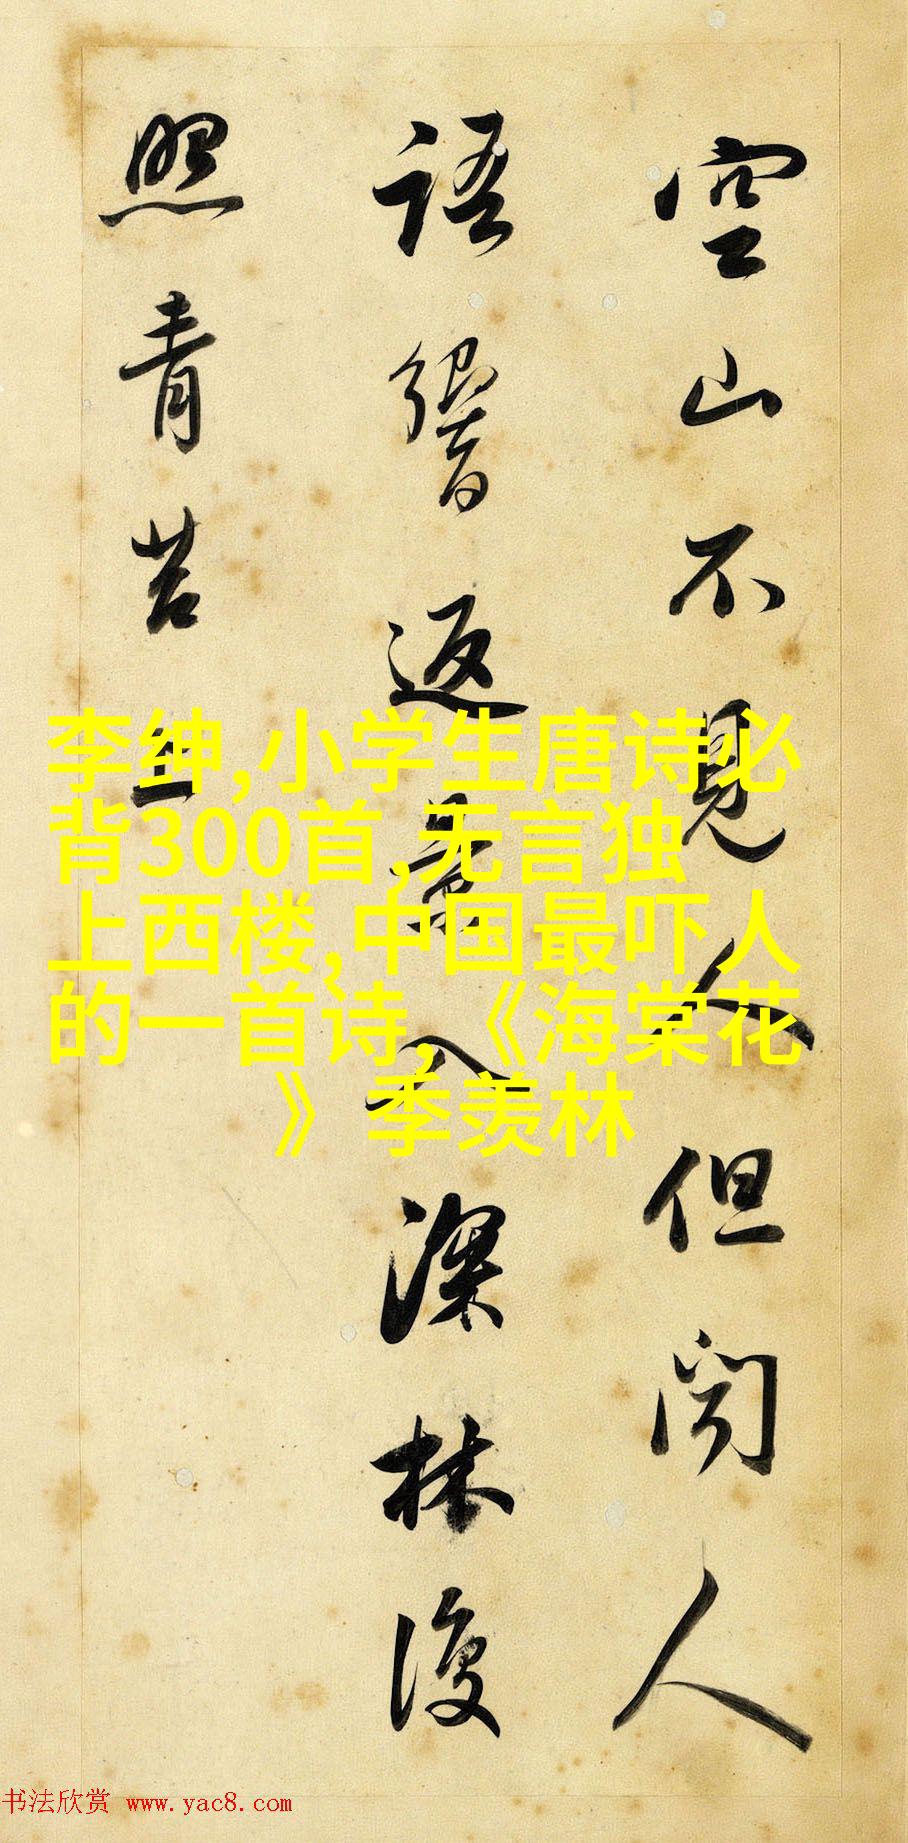 空山不見人但聞人
語響返景入深林復
照青苔上
李绅,小学生唐诗必
背300首,无言独
上西楼,中国最吓人
的一首诗,《海棠花
》 季羡林
书法欣赏 www.yac8.com